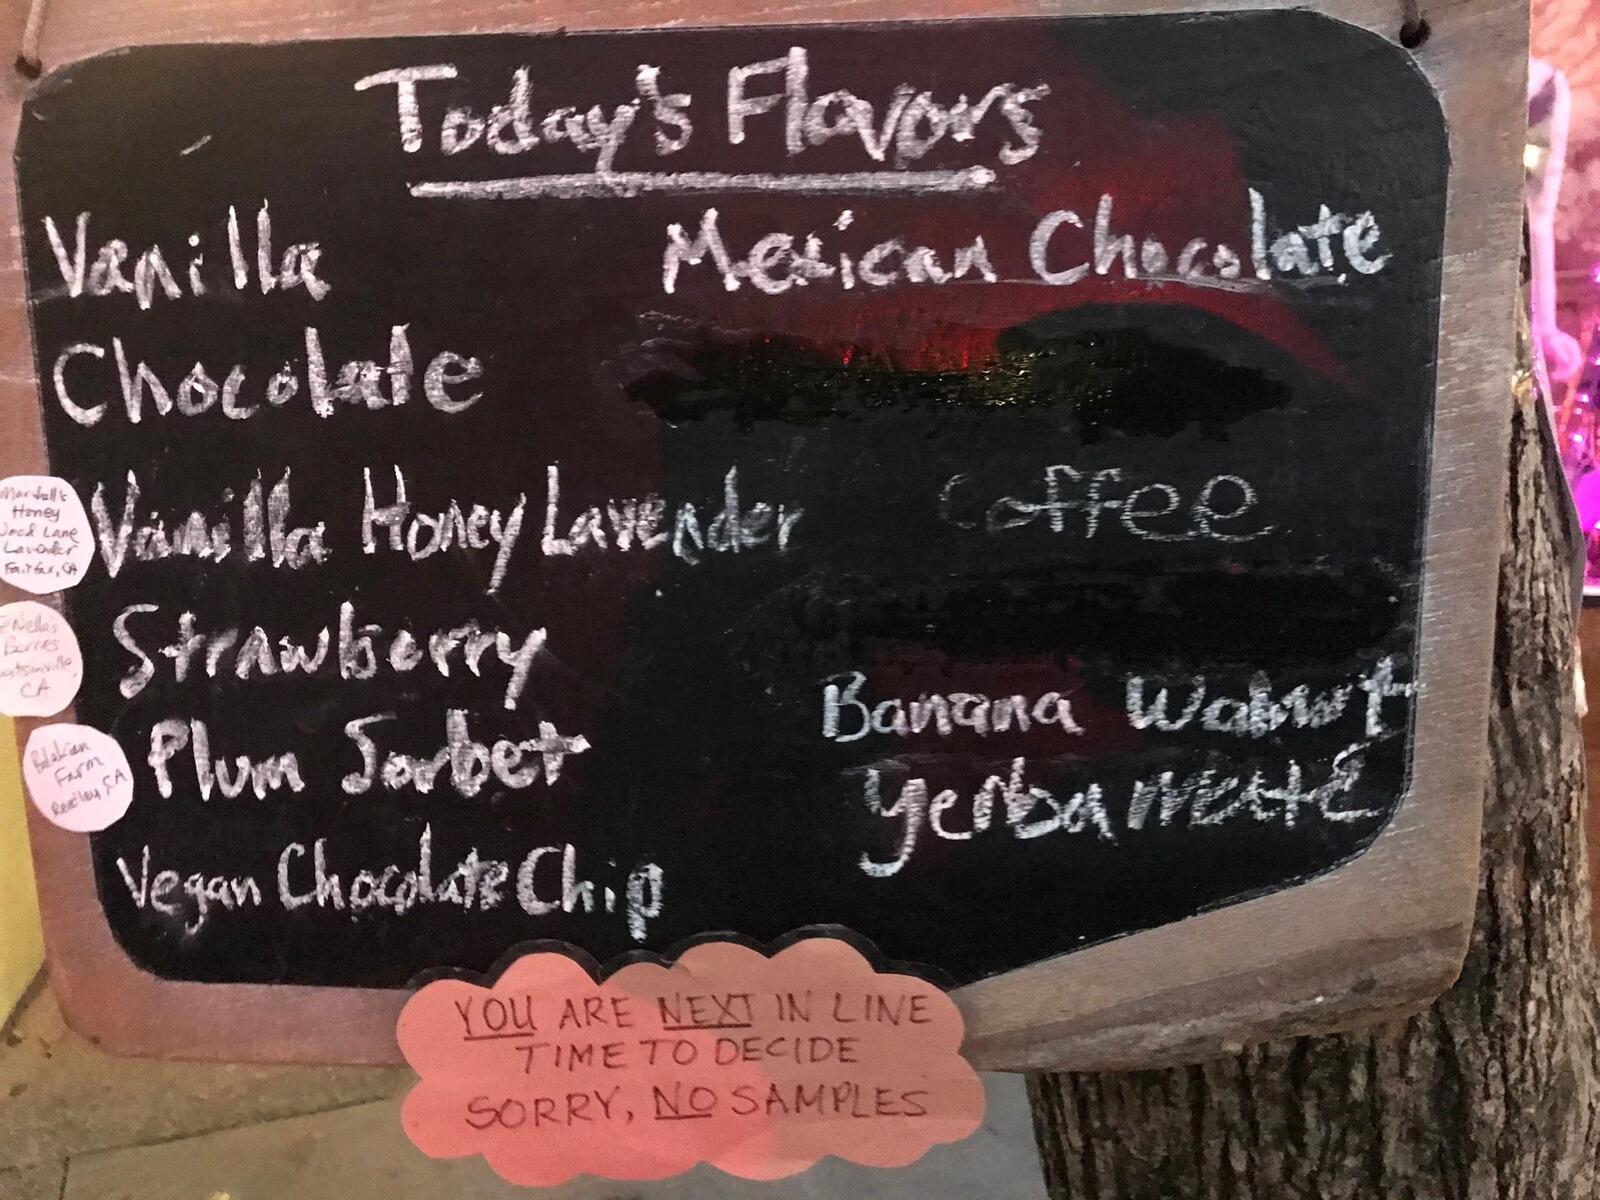 Today's Flavors
Vanilla
Chocolate
Vanilla Honey Lavender
Strawberry
Plum Sorbet
Vegan Chocolate Chip
Mexican Chocolate
Coffee
Banana Walnut
Yerba Matté
Marshall's
Honey
Lane
Lavender
Fairfax, CA
Berries
CA
Farm
Reedley, CA
YOU ARE NEXT IN LINE
TIME TO DECIDE
SORRY, NO SAMPLES